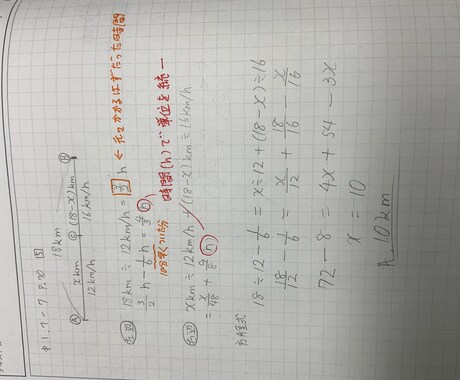 中1.7-7 P.70 [5]
18km
Ⓐ x km Ⓒ (18-x)km Ⓑ
12km/h 16km/h
左辺 18km ÷ 12km/h = 3/2 h ← 元々かかるはずだった時間
3/2 h - 1/6 h = 4/3 h
10分早くついた分
時間(h)で単位を統一
右辺 xkm ÷ 12km/h + (18-x)km ÷ 16km/h
= x/48 + 9/8 h
方程式
18÷12 - 1/6 = x÷12 + (18-x)÷16
18/12 - 1/6 = x/12 + 18/16 - x/16
72 - 8 = 4x + 54 - 3x
x = 10
A. 10km